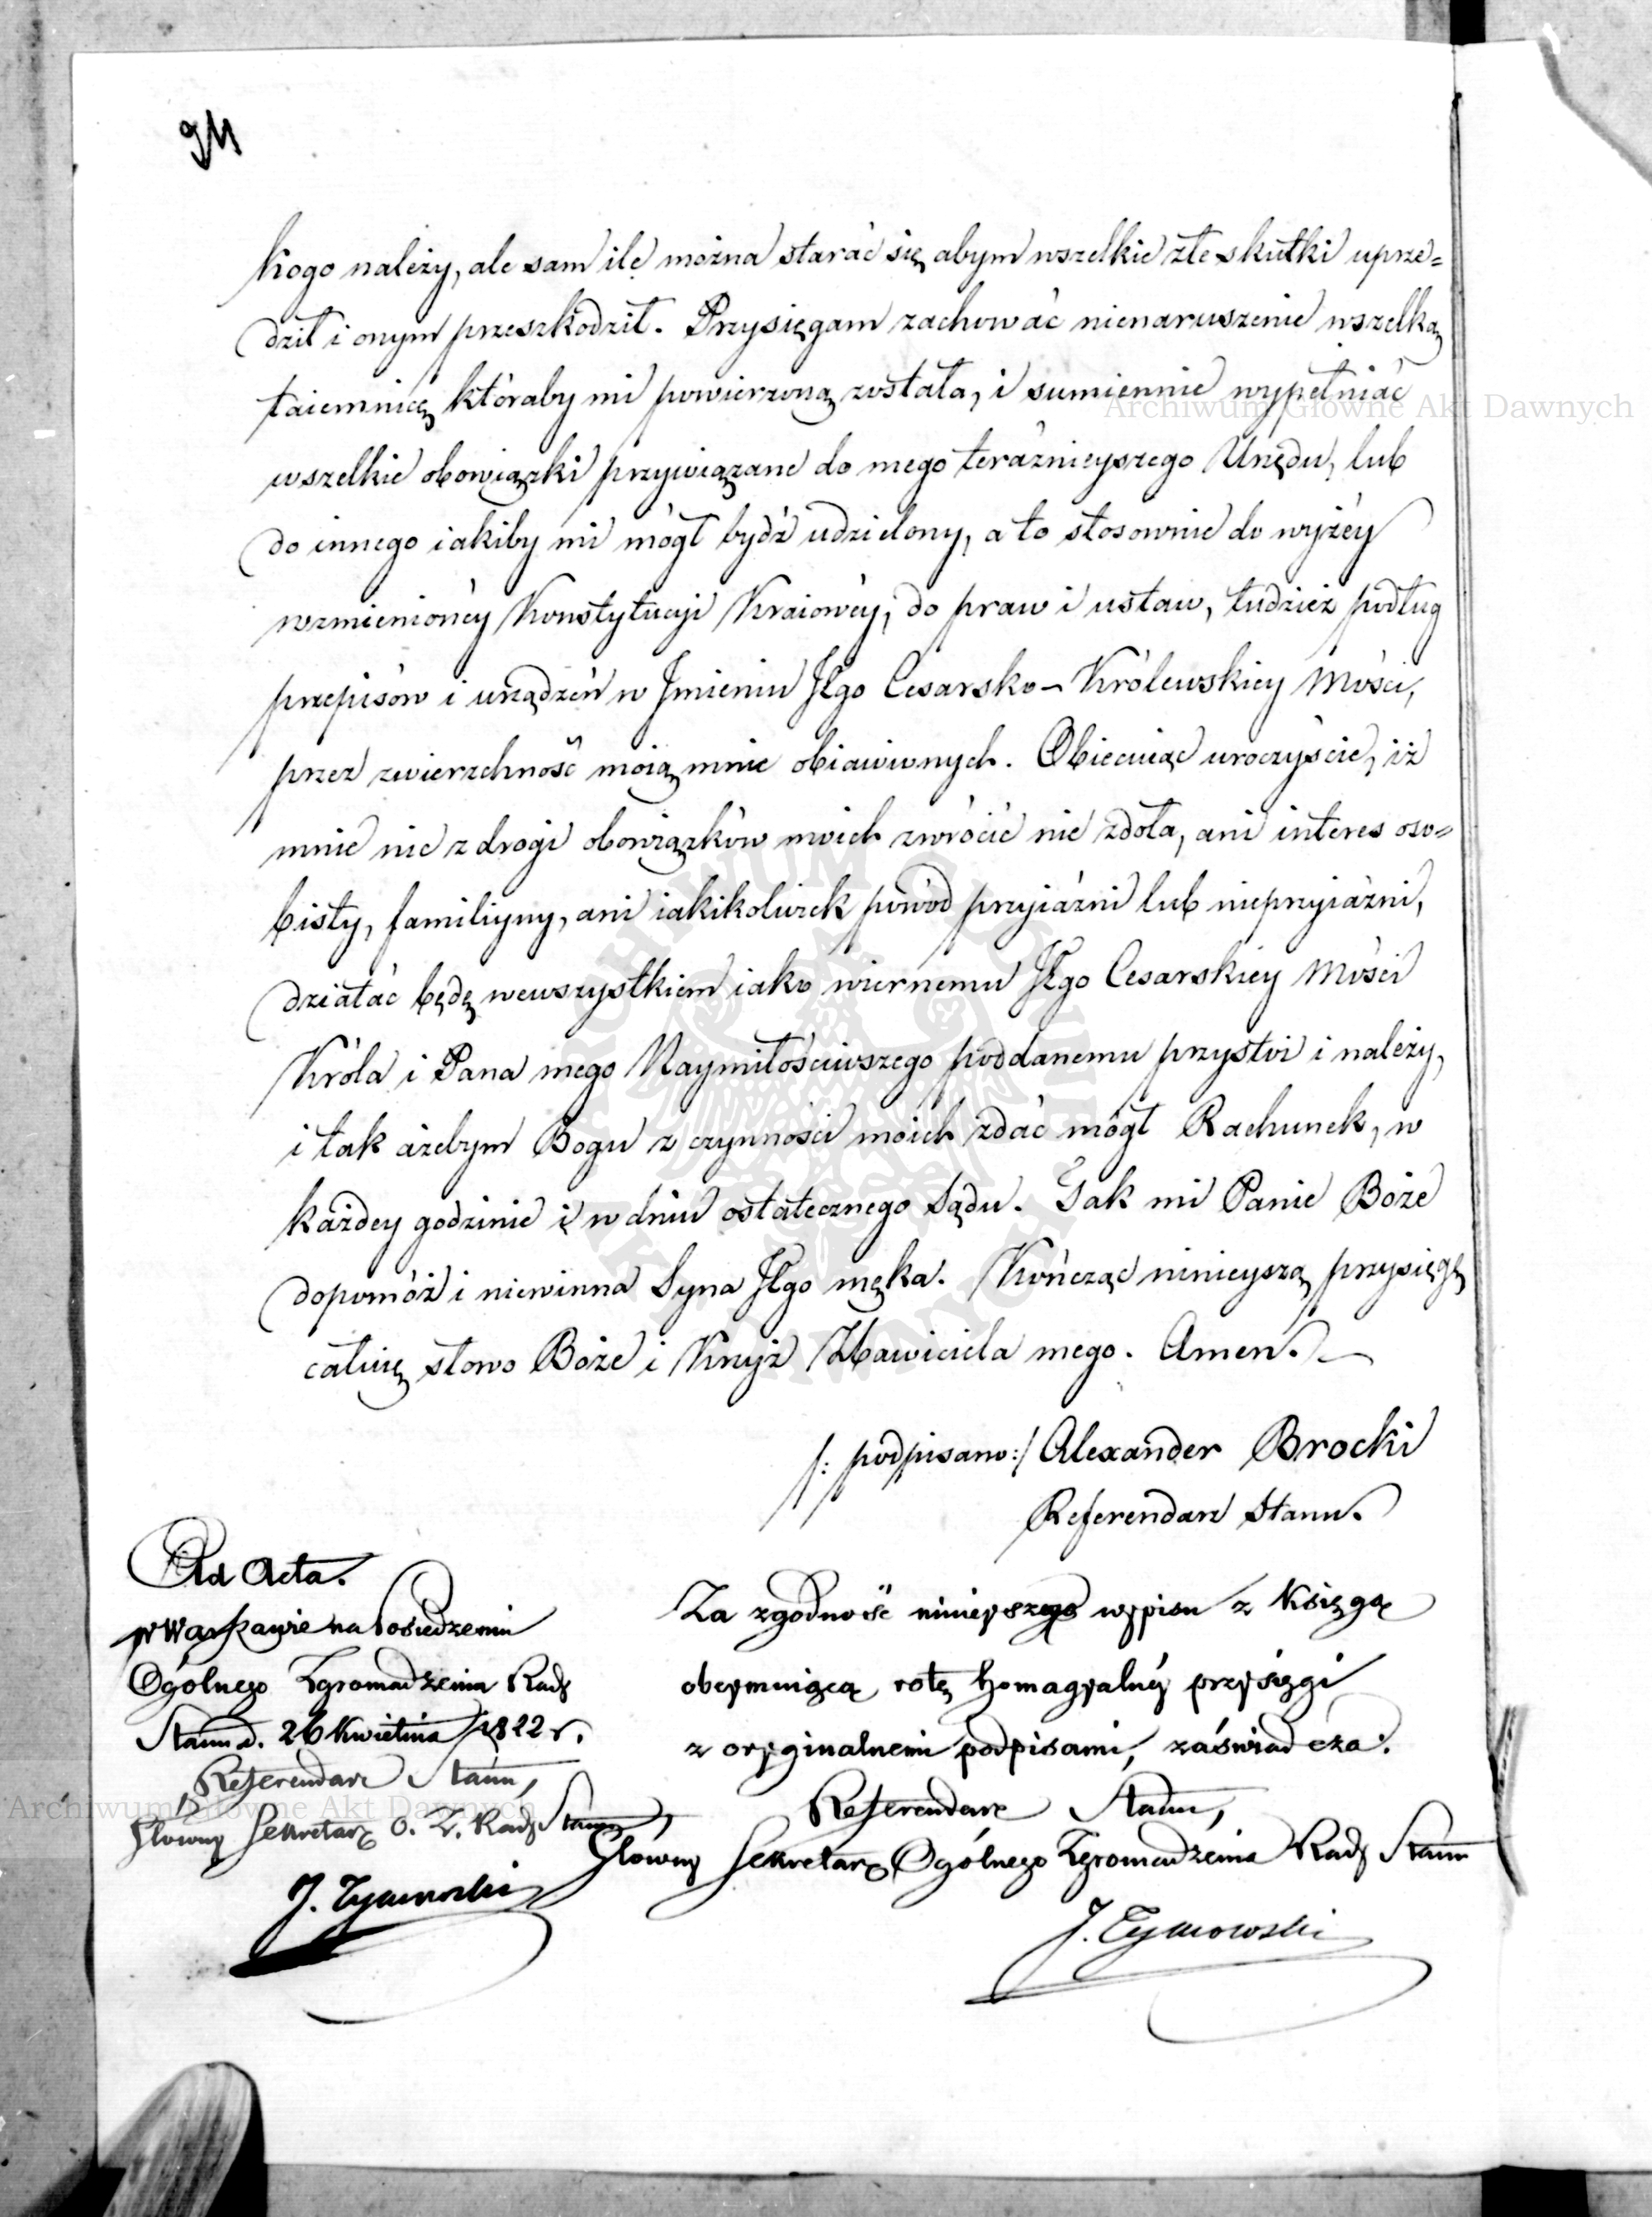 94
kogo należy, ale sam ile można starać się abym wszelkie złe skutki uprze=
dził i onym przeszkodził. Przysięgam zachować nienaruszenie wszelką
taiemnicę któraby mi powierzoną została, i sumiennie wypełniać
wszelkie obowiązki przywiązane do mego teraźnieyszego Urzędu, lub
do innego iakiby mi mógł bydź udzielony, a to stosownie do wyżéy
wzmienionéy Konstytucyi Kraiowéy, do praw i ustaw, tudzież podług
przepisów i urządzeń w Jmieniu JEgo Cesarsko-Królewskiey Mości,
przez zwierzchność moią mnie obiawionych. Obiecuiąc uroczyście, iż
mnie nic z drogi obowiązków moich zwrócić nie zdoła, ani interes oso=
bisty, familiyny, ani iakikolwiek powód przyiaźni lub nieprzyiaźni,
działać będę we wszystkiem iako wiernemu JEgo Cesarskiey Mości
Króla i Pana mego Naymiłościwszego poddanemu przystoi i należy,
i tak ażebym Bogu z czynności moich zdać mógł Rachunek, w
każdey godzinie i w dniu ostatecznego Sądu. Tak mi Panie Boże
dopomóż i niewinna Syna JEgo męka. Kończąc ninieyszą przysięgę
całuię słowo Boże i Krzyż Zbawiciela mego. Amen.
/: podpisano:/ Alexander Brocki
Referendarz Stanu.
Ad Acta.
w Warszawie na Posiedzeniu
Ogólnego Zgromadzenia Rady
Stanu d. 26 Kwietnia 1822 r.
Referendarz Stanu,
Główny Sekretarz O. Z. Rady Stanu,
J. Tymowski
Za zgodność ninieyszego wypisu z Księgą
obeymuiącą rotę homagyalnéy przysięgi
z oryginalnemi podpisami, zaświadcza.
Referendarz Stanu,
Główny Sekretarz Ogólnego Zgromadzenia Rady Stanu
J. Tymowski
Archiwum Główne Akt Dawnych
Archiwum Główne Akt Dawnych
ARCHIWUM GŁÓWNE AKT DAWNYCH